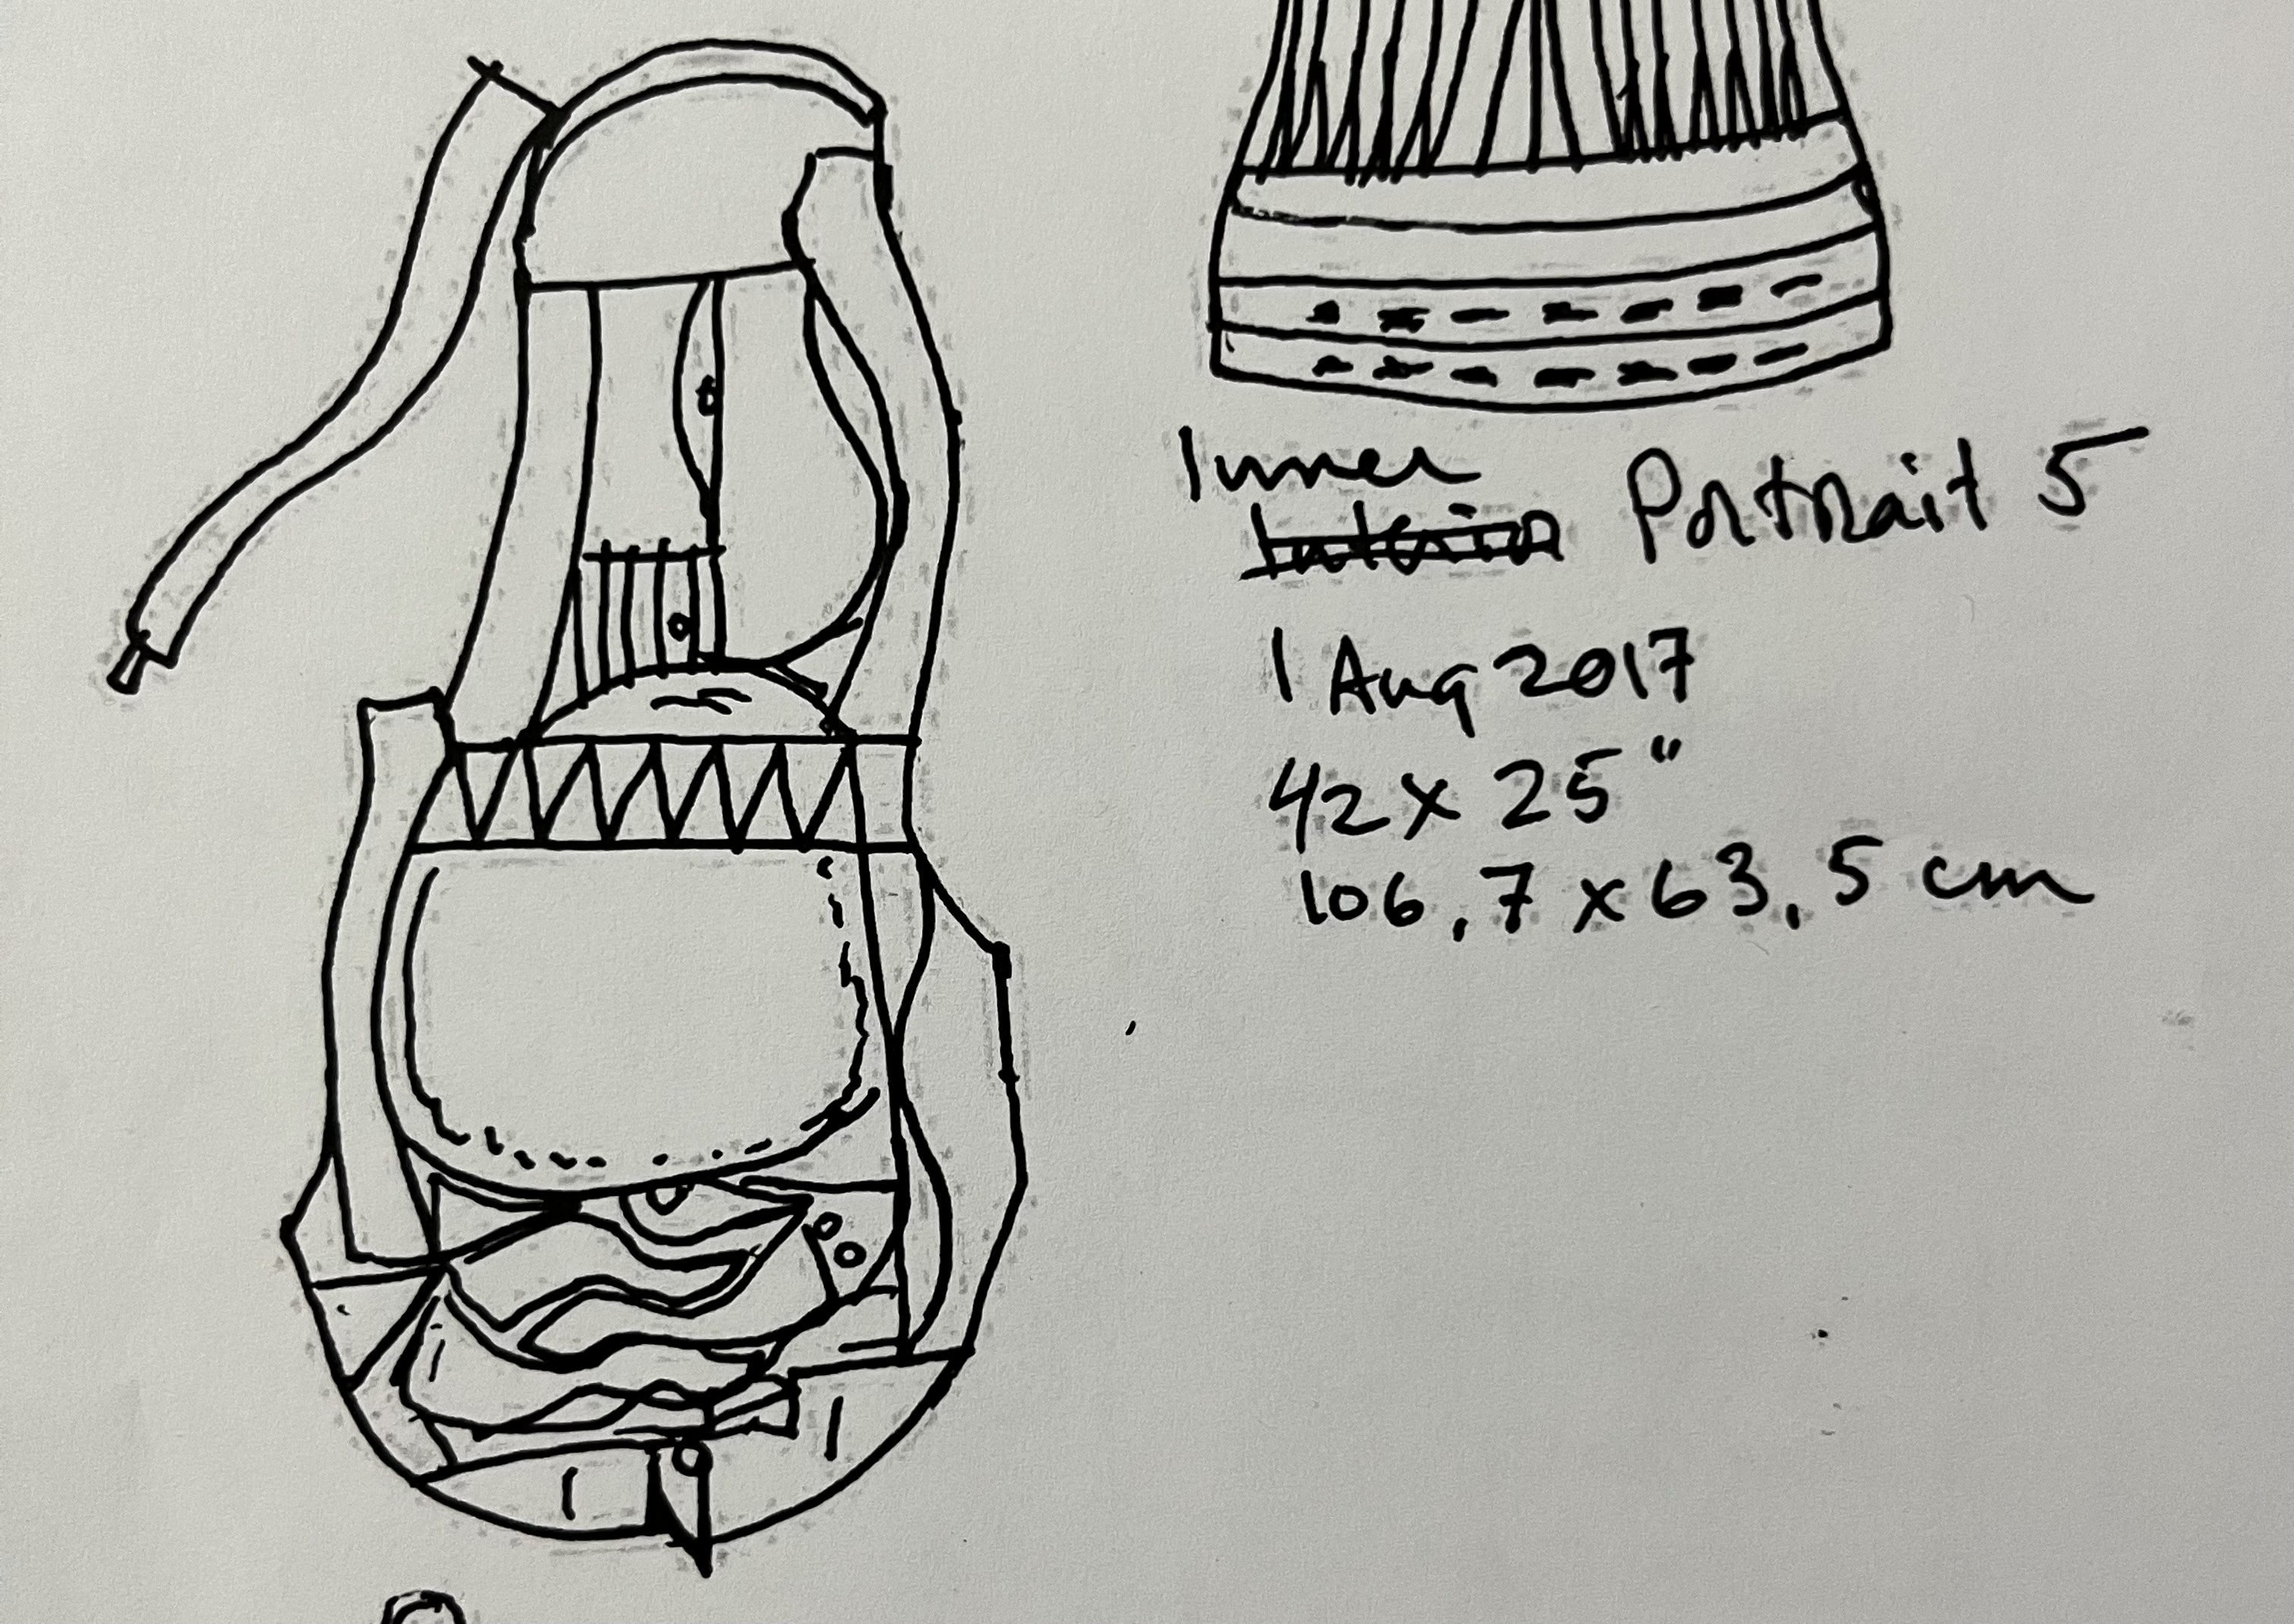 Inner
Interior Portrait 5
1 Aug 2017
42 x 25"
106.7 x 63.5 cm